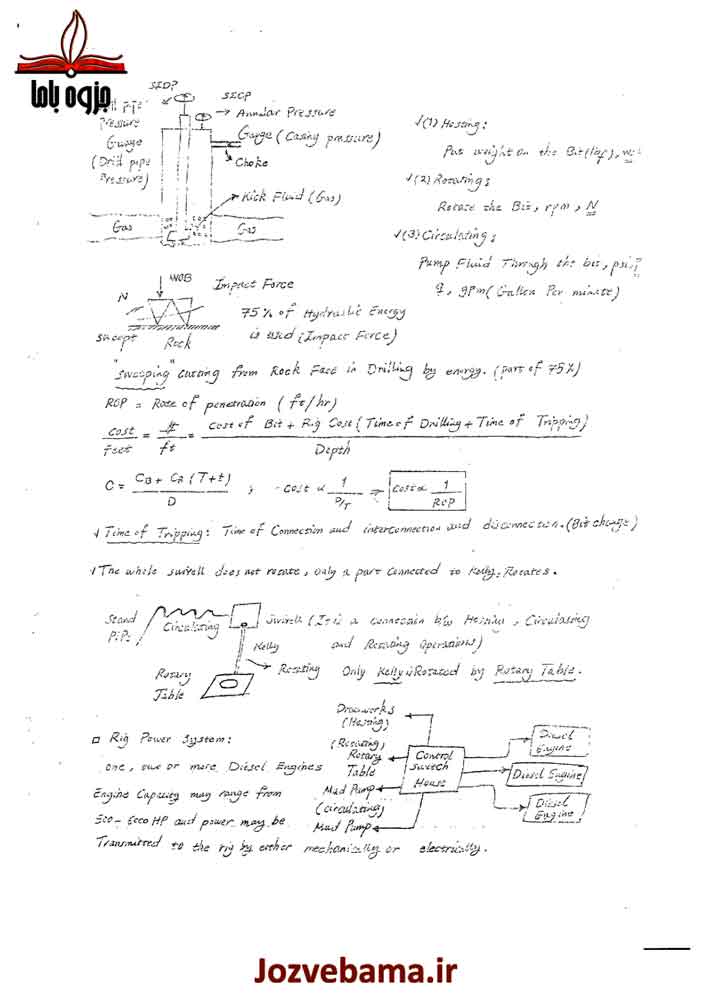 جزوه باما
SIDP
SICP
Pressure
Guage
(Drill pipe
Pressure)
Annular Pressure
Gauge (Casing pressure)
Choke
Kick Fluid (Gas)
Gas
Gas
√(1) Hosting:
Put weight on the Bit
√(2) Rotating:
Rotate the Bit, rpm, N
√(3) Circulating:
Pump Fluid Through the bit, psi,
q, gpm (Gallon Per minute)
WOB
N
Impact Force
75% of Hydraulic Energy
is used (Impact Force)
Rock
"Sweeping" cutting from Rock Face in Drilling by energy. (part of 75%)
ROP = Rate of penetration (ft/hr)
cost/feet = $/ft = Cost of Bit + Rig Cost (Time of Drilling + Time of Tripping) / Depth
C = CB + CR (T+t) / D ; Cost ∝ 1 / D/T ⇒ Cost ∝ 1/ROP
√ Time of Tripping: Time of Connection and interconnection and disconnection. (Bit change)
√ The whole swivell does not rotate, only a part connected to Kelly Rotates.
Stand
Pipe
Circulating
Swivell (It is a connection b/w Hosting, Circulating
and Rotating Operations)
Kelly
Rotating
Only Kelly is Rotated by Rotary Table.
Rotary
Table
□ Rig Power System:
one, two or more Diesel Engines
Engine Capacity may range from
500-5000 HP and power may be
Transmitted to the rig by either mechanically or electrically.
Drawworks
(Hosting)
(Rotating)
Rotary
Table
Mud Pump
(circulating)
Mud Pump
Control
Switch
House
Diesel
Engine
Diesel Engine
Diesel
Engine
Jozvebama.ir